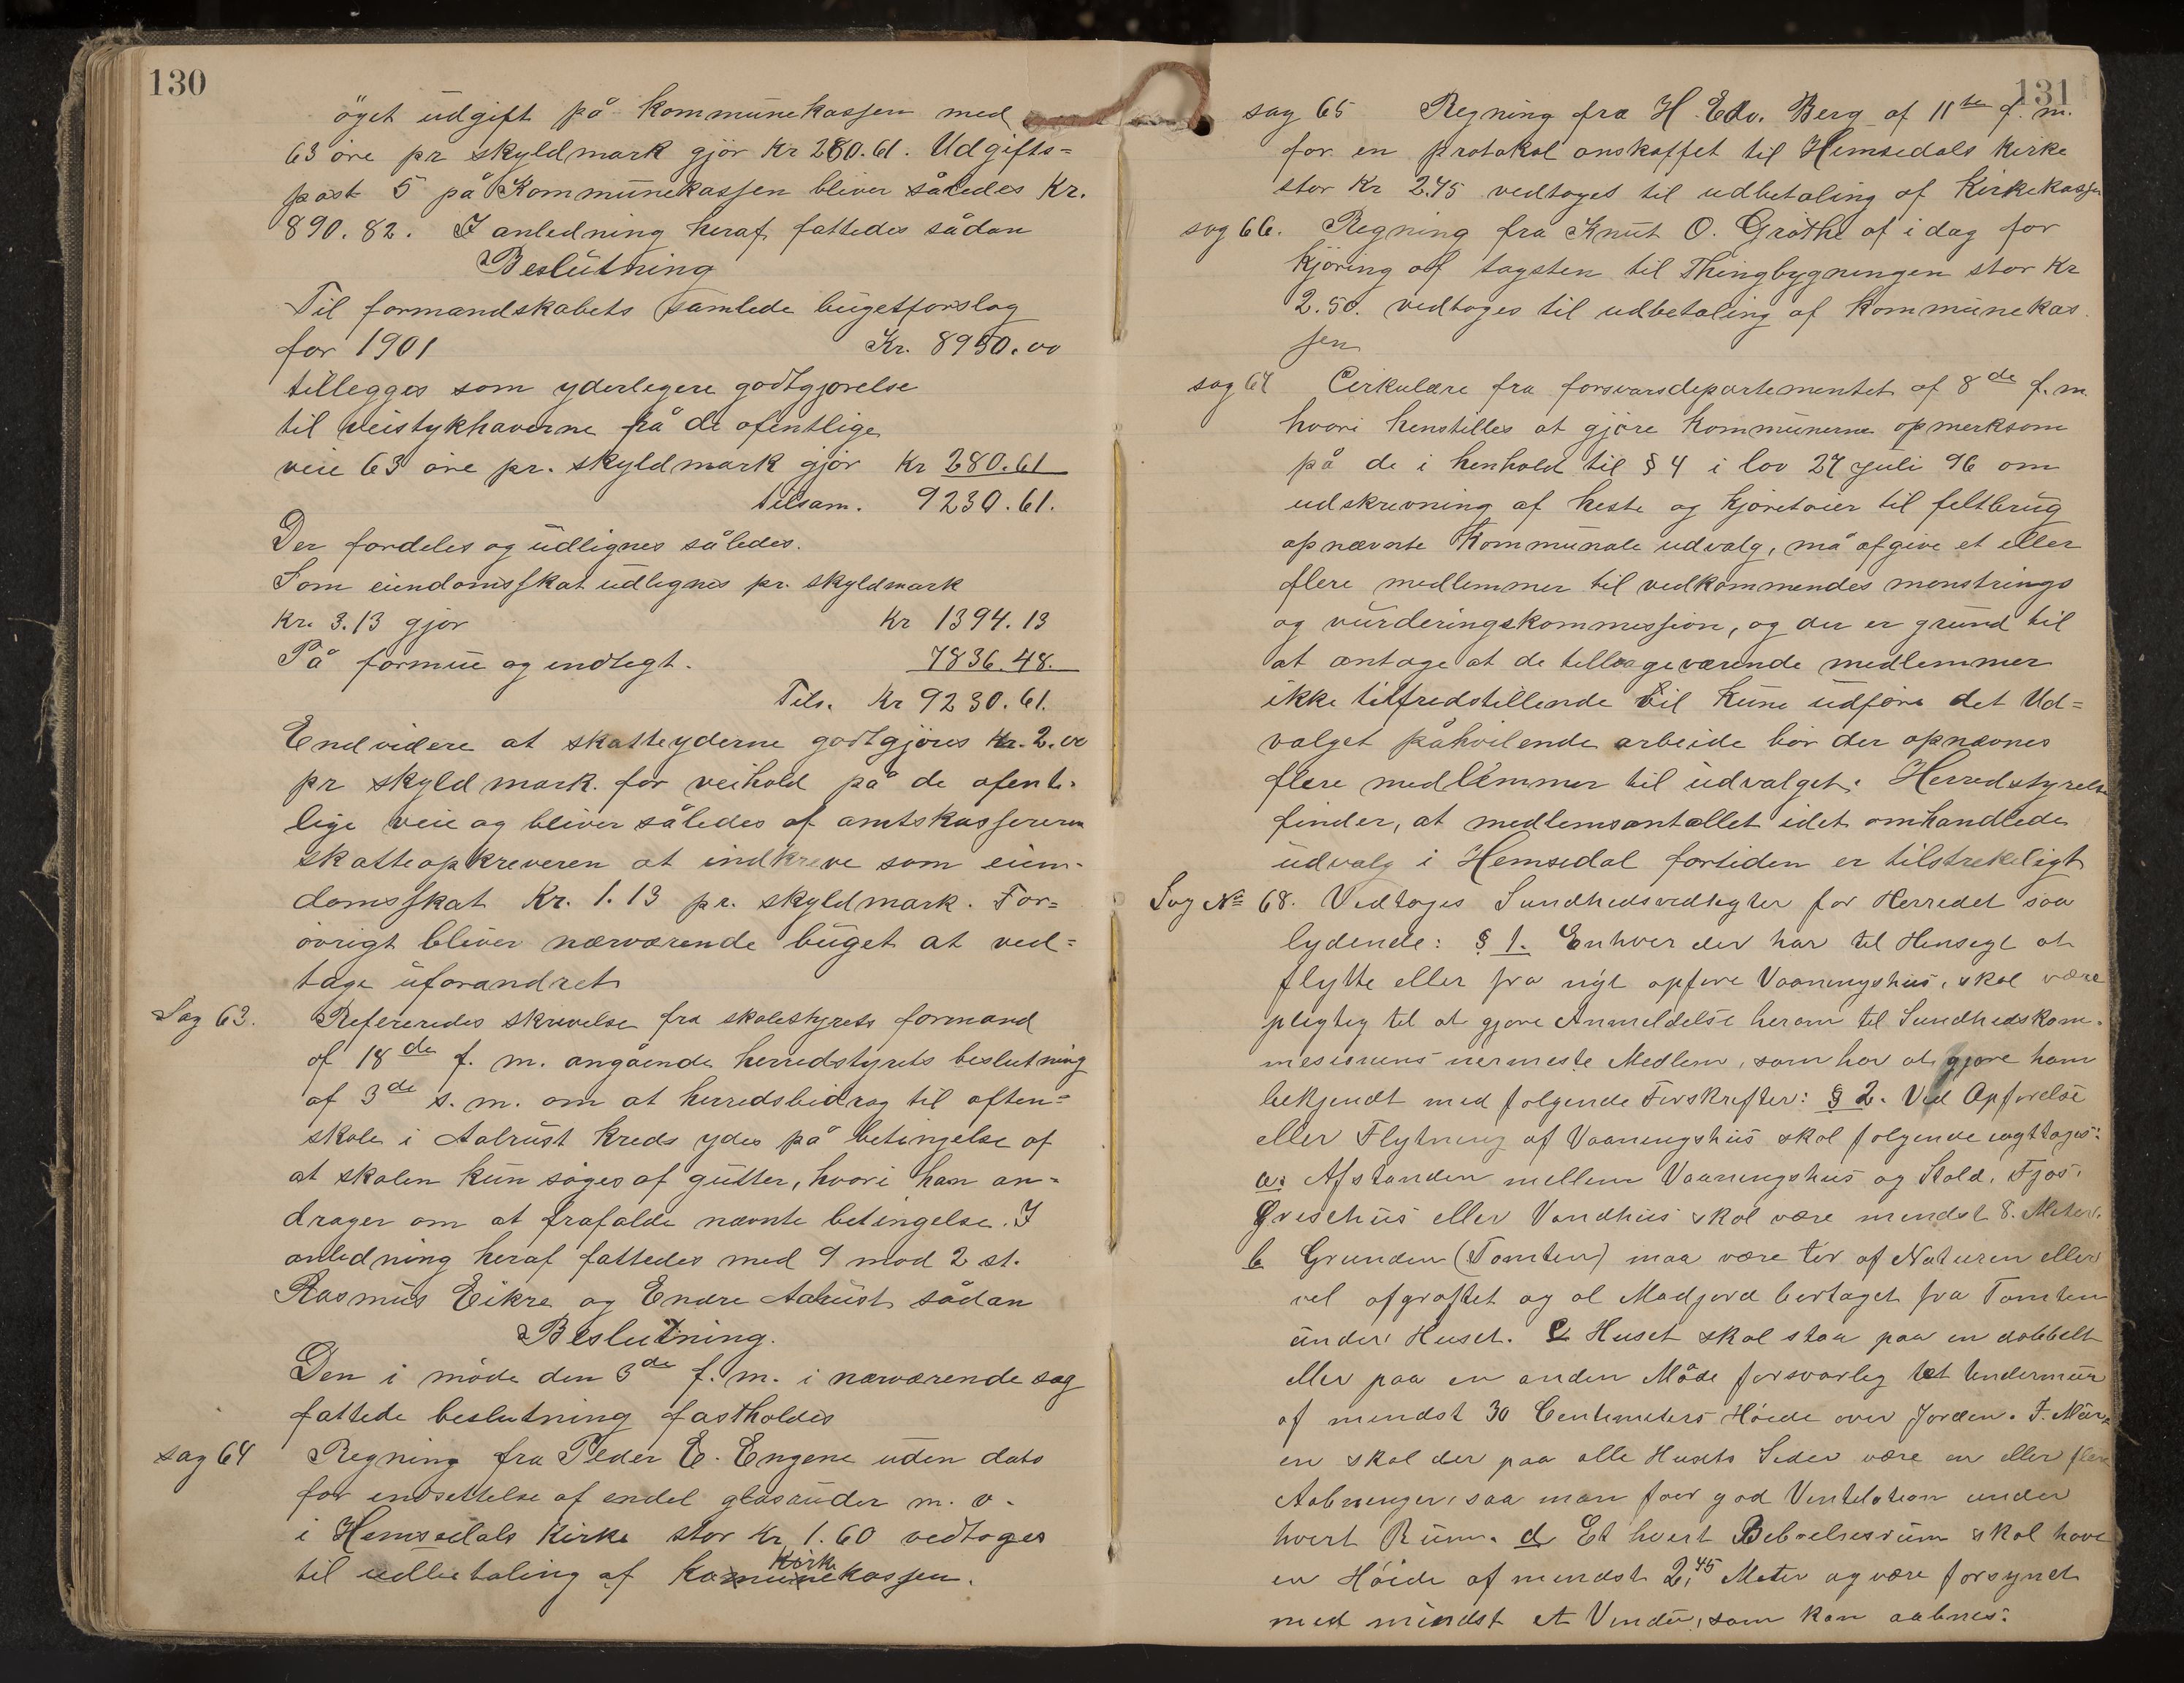 130
öget udgift på kommunekassen med
63 öre pr skyldmark gjör Kr 280.61. Udgifts=
post 5 på Kommunekassen bliver således Kr.
890.82. I anledning heraf fattedes sådan
Beslutning
Til formandskabets samlede bugetforslag
for 1901 Kr. 8950.00
tillegges som yderligere godtgjorelse
til veistykhaverne på de ofentlige
veie 63 öre pr. skyldmark gjör Kr 280.61
tilsam. 9230.61.
Der fordeles og udlignes således.
Som eiendomsskat udlignes pr. skyldmark
Kr. 3.13 gjör Kr 1394.13
På formue og indtegt. 7836.48.
Tils. Kr 9230.61.
Endvidere at skatteyderne godtgjöres Kr. 2.00
pr skyldmark. for veihold på de ofent-
lige veie og bliver således af amtskassereren
skatteopkreveren at indkreve som eien-
domsskat Kr. 1.13 pr. skyldmark. For=
övrigt bliver nærværende buget at ved=
tage uforandret
Sag 63. Refereredes skrivelse fra skolestyrets formand
af 18de f. m. angående herredstyrets beslutning
af 3de s. m. om at herredsbidrag til aften=
skole i Aalrust kreds ydes på betingelse af
at skolen kun söges af gutter, hvori han an=
drager om at frafalde nævnte betingelse. I
anledning heraf fattedes med 9 mod 2 st.
Rasmus Eikre og Endre Aalrust sådan
Beslutning.
Den i möde den 3de f. m. i nærværende sag
fattede beslutning fastholdes
sag 64 Regning fra Peder E. Engene uden dato
for indsettelse af endel glasruder m. v.
i Hemsedals Kirke stor Kr 1.60 vedtoges
til udbetaling af Komunekassen.
Kirke
131
sag 65 Regning fra H. Edv. Berg af 11te f. m.
for en protokol anskaffet til Hemsedals Kirke
stor Kr 2.75 vedtoges til udbetaling af Kirkekassen
sag 66. Regning fra Knut O. Gröthe af i dag for
kjöring af tagsten til Thingbygningen stor Kr
2.50. vedtoges til udbetaling af kommunekas
sen
sag 67 Cirkulære fra forsvarsdepartementet af 8de f. m.
hvori henstilles at gjöre kommunerne opmerksom
på de i henhold til § 4 i lov 27 juli 96 om
udskrivning af heste og kjöretöier til feltbrug
opnævnte kommunale udvalg, må afgive et eller
flere medlemmer til vedkommendes mönstrings
og vurderingskommission, og der er grund til
at antage at de tilbageværende medlemmer
ikke tilfredstillende vil kune udföre det Ud=
valget påhvilende arbeide bör der opnævnes
flere medlemmer til udvalget. Herredstyrelsen
finder, at medlemsantallet idet omhandlede
udvalg i Hemsedal fortiden er tilstrekeligt
Sag No 68. Vedtoges Sundhedsvedtegter for Herredet saa
lydende: § 1. Enhver der har til Hensegt at
flytte eller fra nyt opföre Vaaningshus, skal være
pligtig til at gjöre Anmeldelse herom til Sundhedskom-
mesionens nermeste Medlem, som har at gjöre ham
bekjendt med fölgende Forskrifter: § 2. Ved Opförelse
eller Flytning af Vaaningshus skal fölgende iagttages:
a. Afstanden mellem Vaaningshus og Stald, Fjös,
Grisehus eller Vandhus skal være mindst 8. Meter.
b Grunden (Tomten) maa være tör af Naturen eller
vel afgröftet og al Madjord bortaget fra Tomten
under Huset. c Huset skal staa paa en dobbelt
eller paa en anden Måde forsvarleg tæt Undermur
af mindst 30 Centimeters Höide over Jorden. I Mur-
en skal der paa alle Husets Seder være en eller flere
Aabninger, saa man faar god Ventilation under
hvert Rum. d Et hvert Beboelsesrum skal have
en Höide af mindst 2,45 Meter og være forsynet
med mindst et Vindu, som kan aabnes.